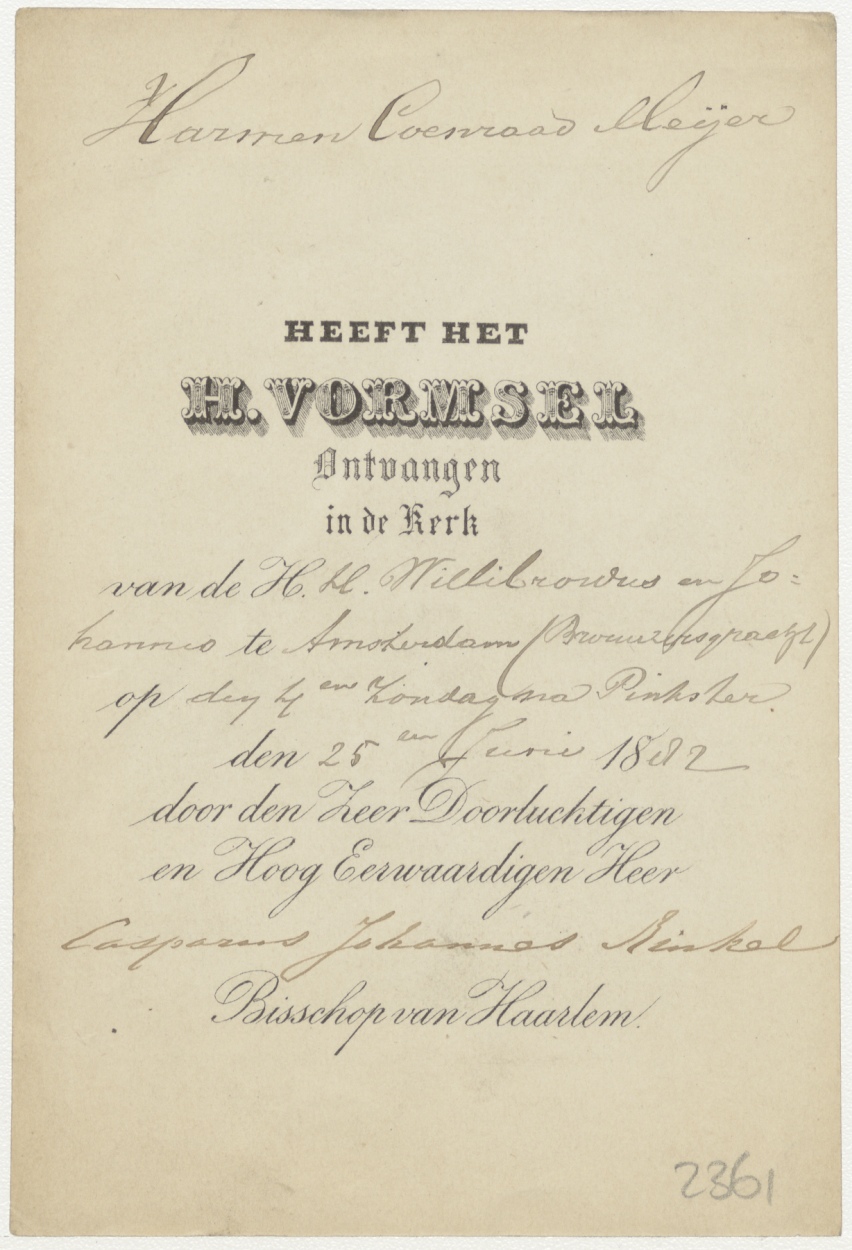 Harmen Coenraad Meÿer
HEEFT HET
H. VORMSEL
Ontvangen
in de Kerk
van de H. H. Willibrordus en Jo=
hannes te Amsterdam (Brouwersgracht)
op den 4en Zondag na Pinkster.
den 25en Junie 1882
door den Zeer Doorluchtigen
en Hoog Eerwaardigen Heer
Casparus Johannes Rinkel
Bisschop van Haarlem.
2361